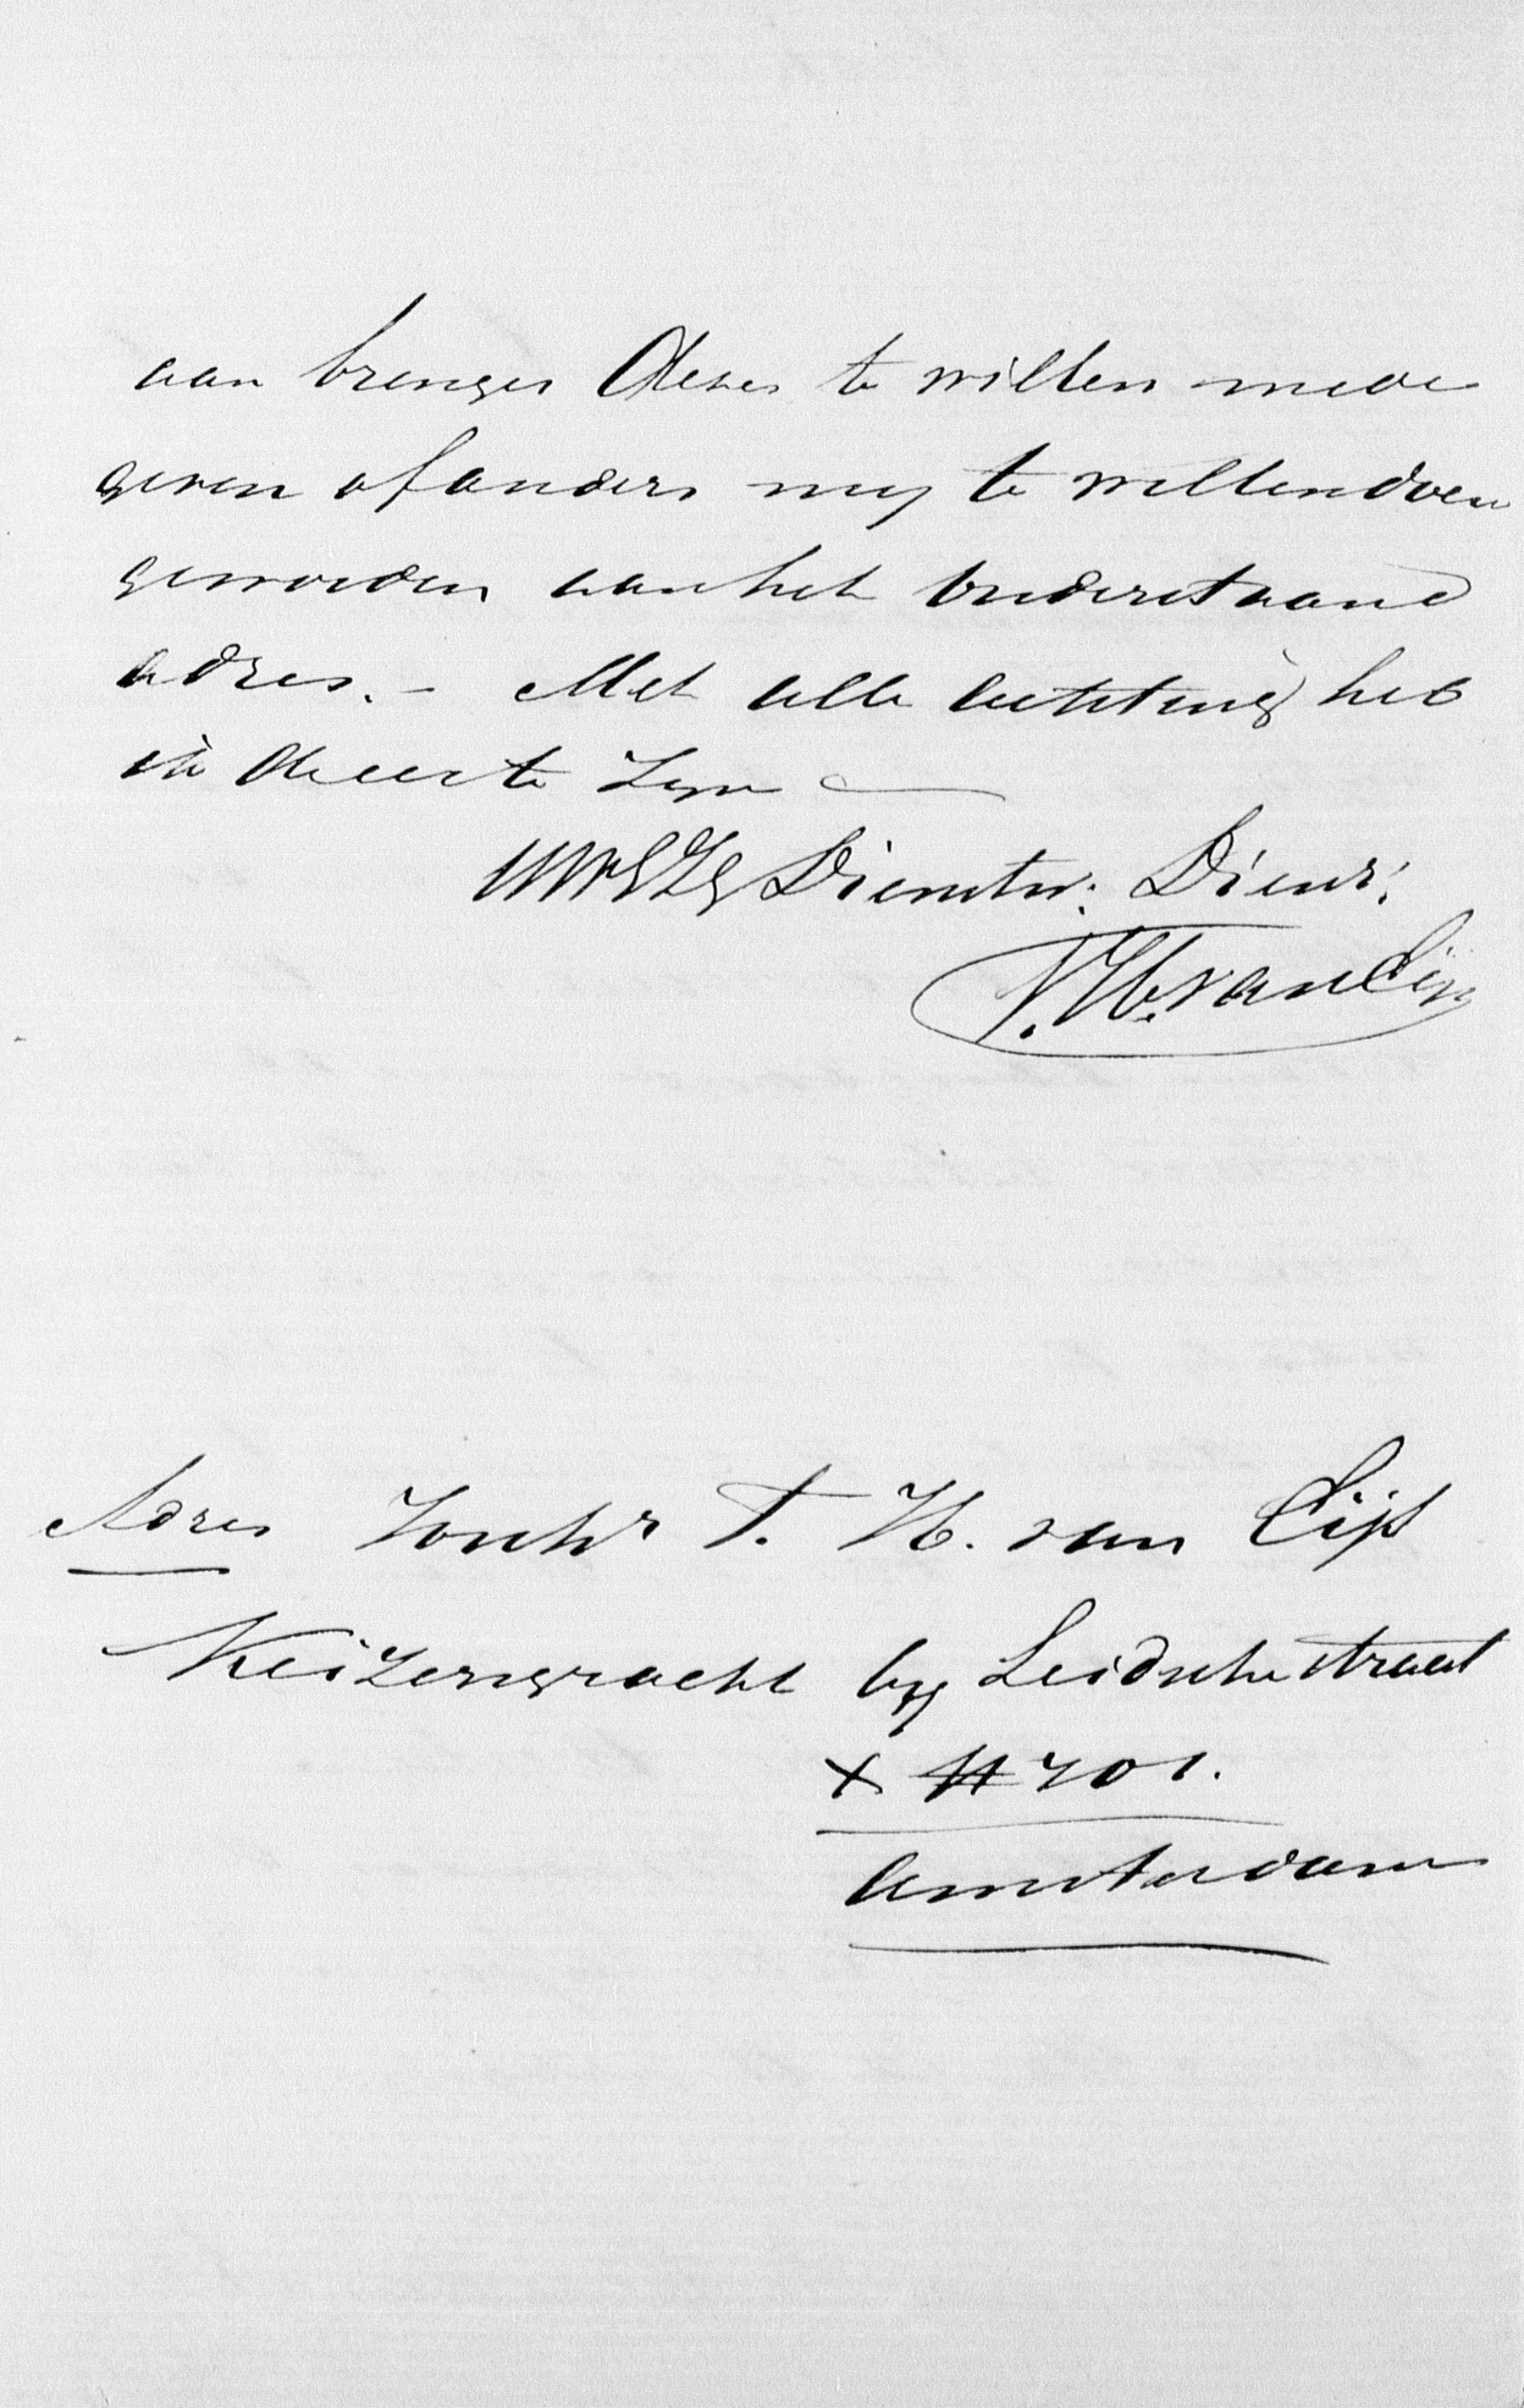 aan brenger dezes te willen mede
geven of anders my te willen doen
geworden aan het onderstaand
adres. - Met alle achting heb
ik de eer te zyn
UWEZG Dienstw: Dienr:
T. H. van Lip
Adres Jonkhr T. H. van Lip
Keizersgracht by Leidschestraat
X # 701.
Amsterdam